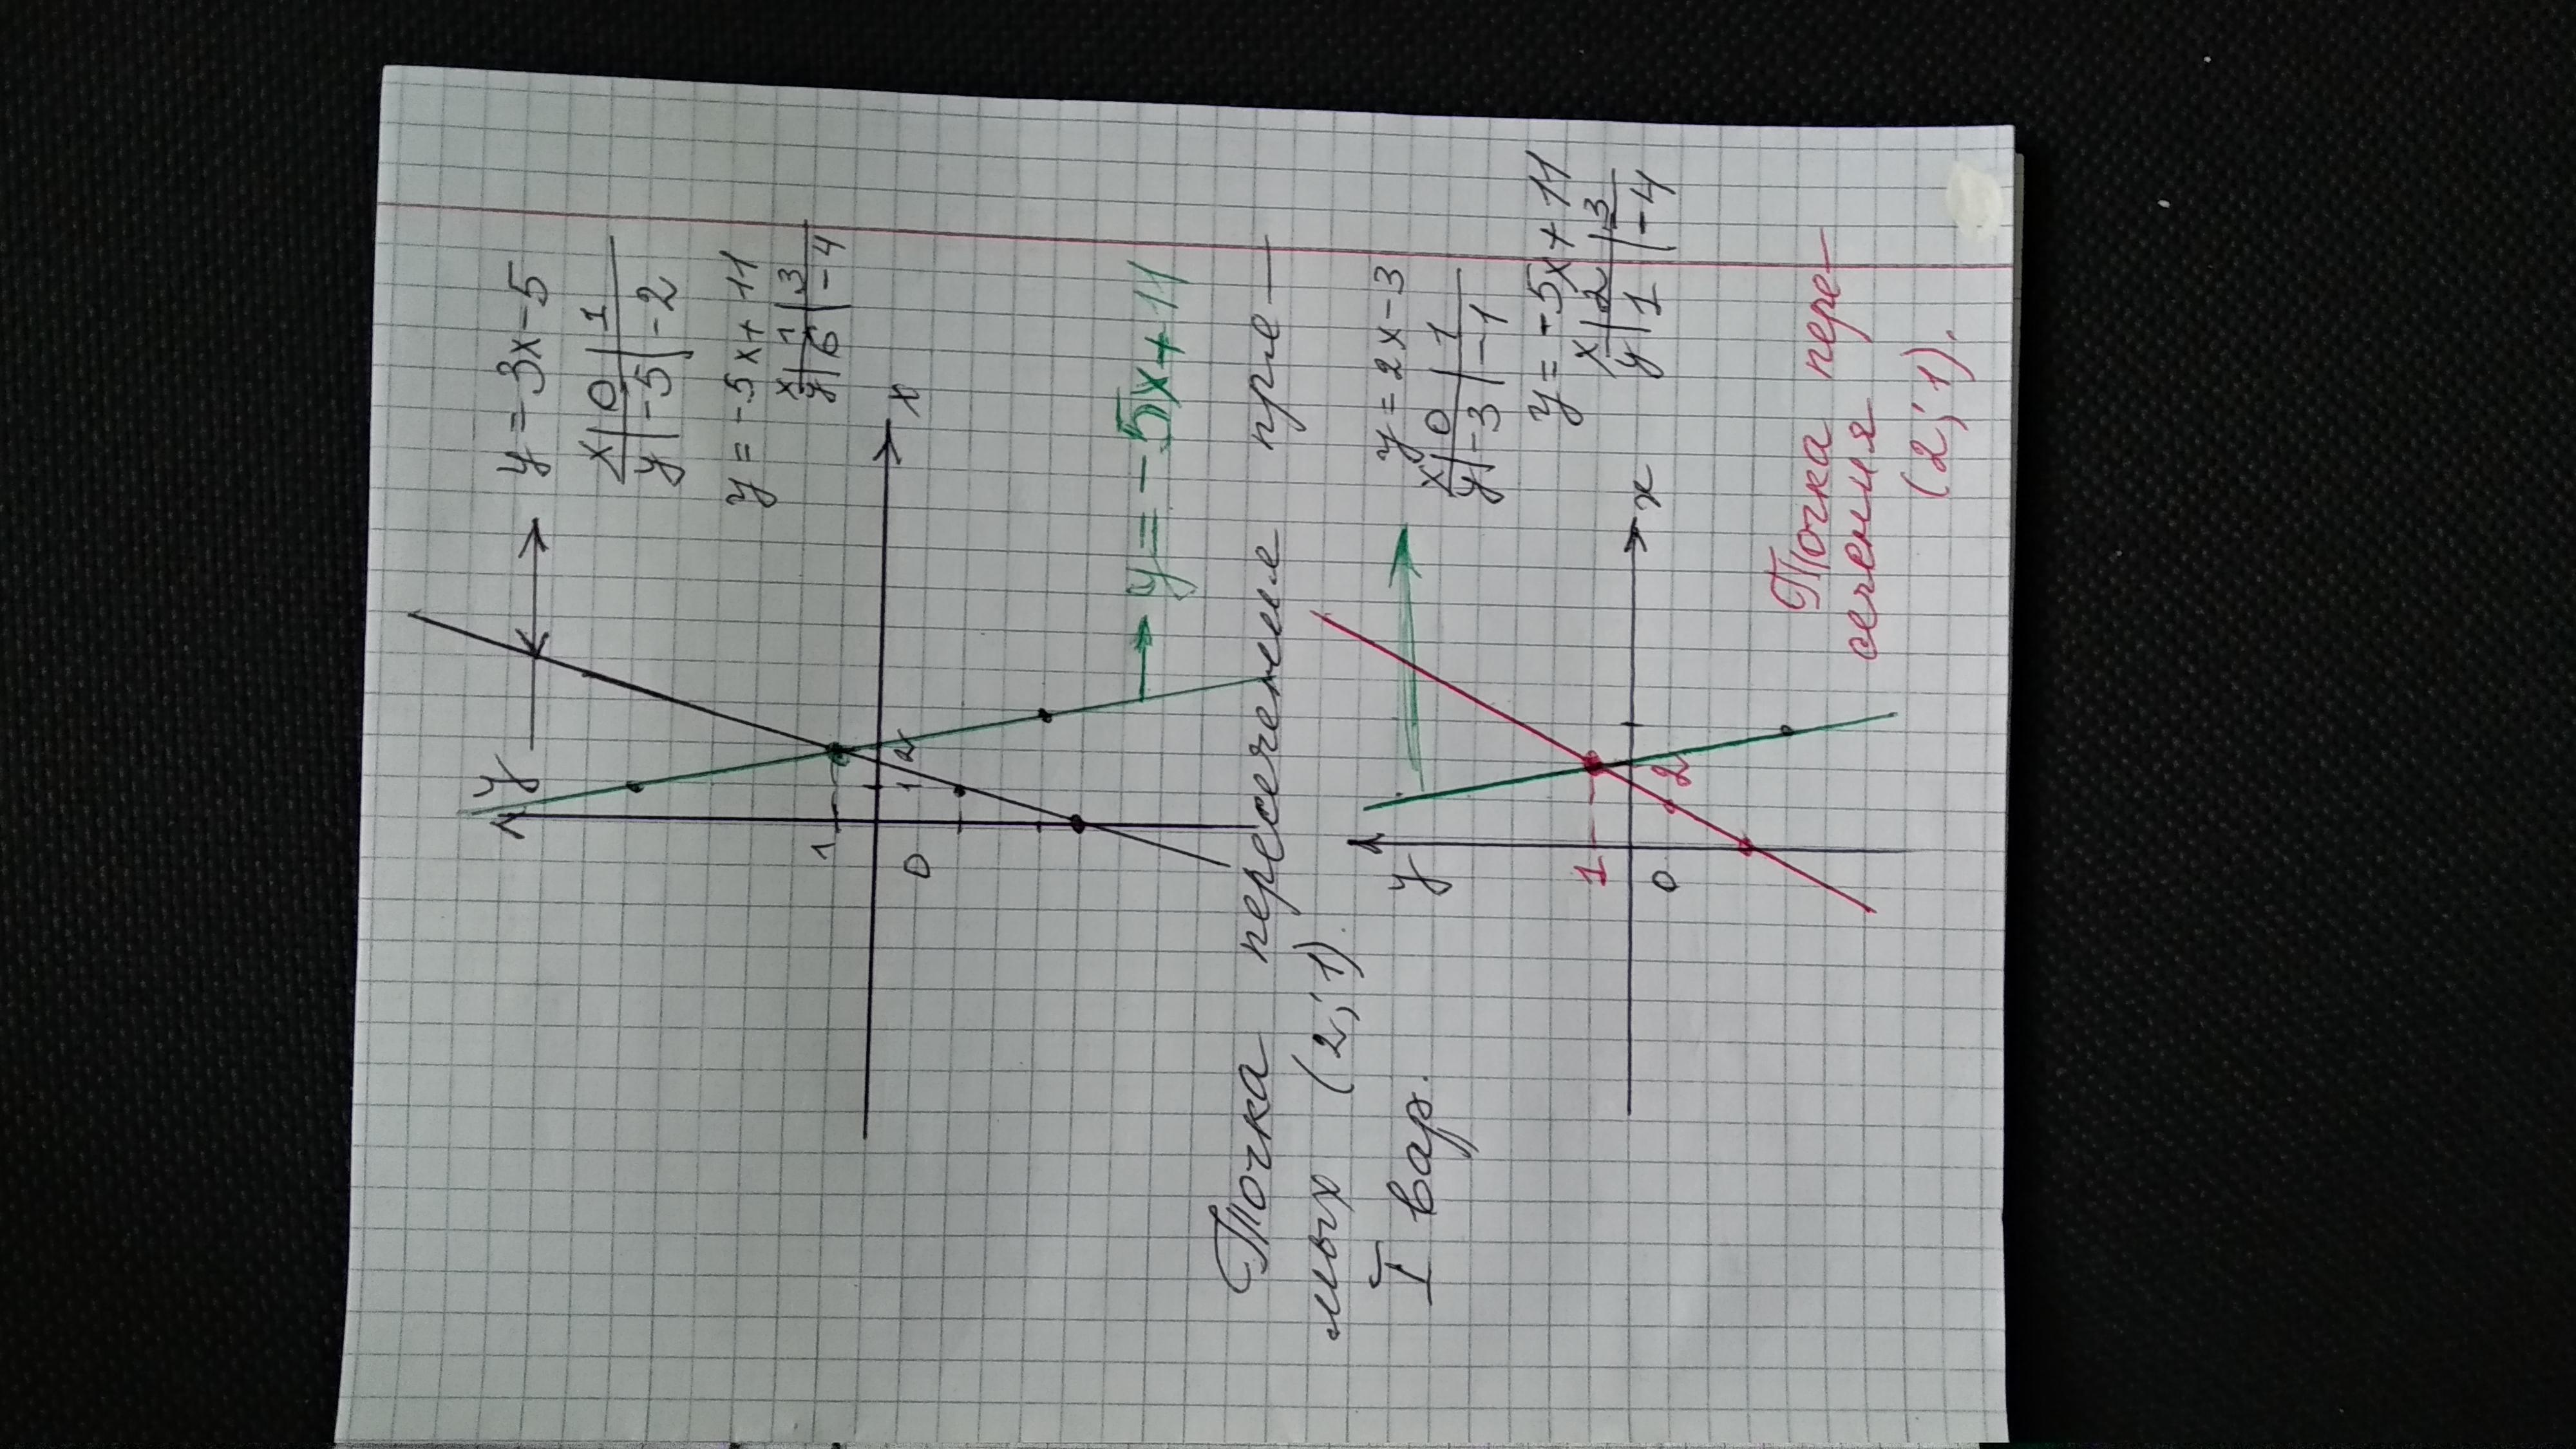 y = 3x-5
x | 0 | 1
y | -5 | -2
y = -5x + 11
x | 1 | 3
y | 6 | -4
y
x
1
0
1
2
y = - 5x + 11
Точка пересечение пре-
мых (2; 1).
I вар.
y = 2x-3
x | 0 | 1
y | -3 | -1
y = -5x + 11
x | 2 | 3
y | 1 | -4
y
x
1
0
2
Точка пере-
сечения
(2; 1).